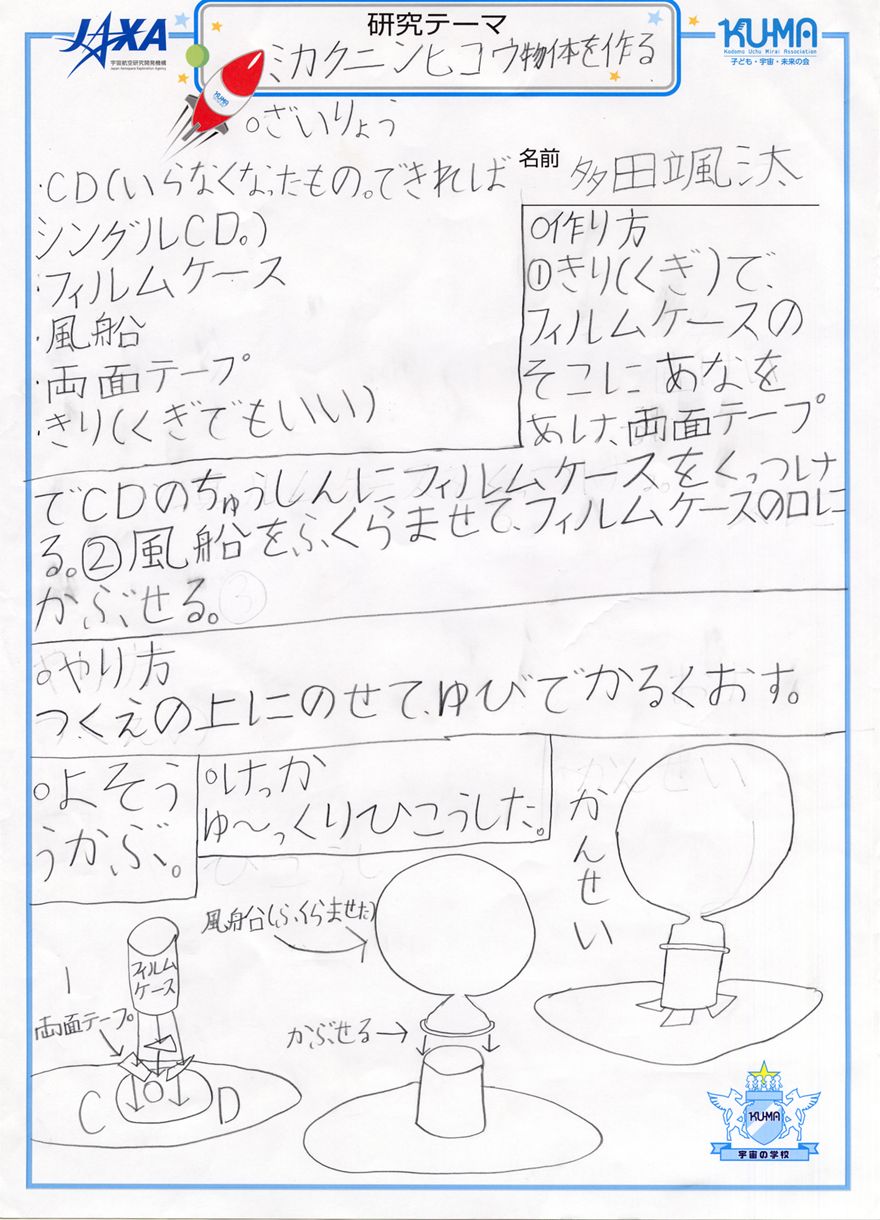 JAXA
宇宙航空研究開発機構
Japan Aerospace Exploration Agency
研究テーマ
ミカクニンヒコウ物体を作る
KU-MA
Kodomo Uchu Mirai Association
子ども・宇宙・未来の会
KU-MA
○ざいりょう
名前 多田颯汰
・CD(いらなくなったもの。できれば
シングルCD。)
・フィルムケース
・風船
・両面テープ
・きり(くぎでもいい)
○作り方
①きり(くぎ)で、
フィルムケースの
そこにあなを
あけ、両面テープ
でCDのちゅうしんにフィルムケースをくっつけ
る。②風船をふくらませて、フィルムケースの口に
かぶせる。
○やり方
つくえの上にのせて、ゆびでかるくおす。
○よそう
うかぶ。
○けっか
ゆ〜っくりひこうした。
かんせい
風船(ふくらませた)
フィルム
ケース
両面テープ
かぶせる→
C D
KU-MA
宇宙の学校